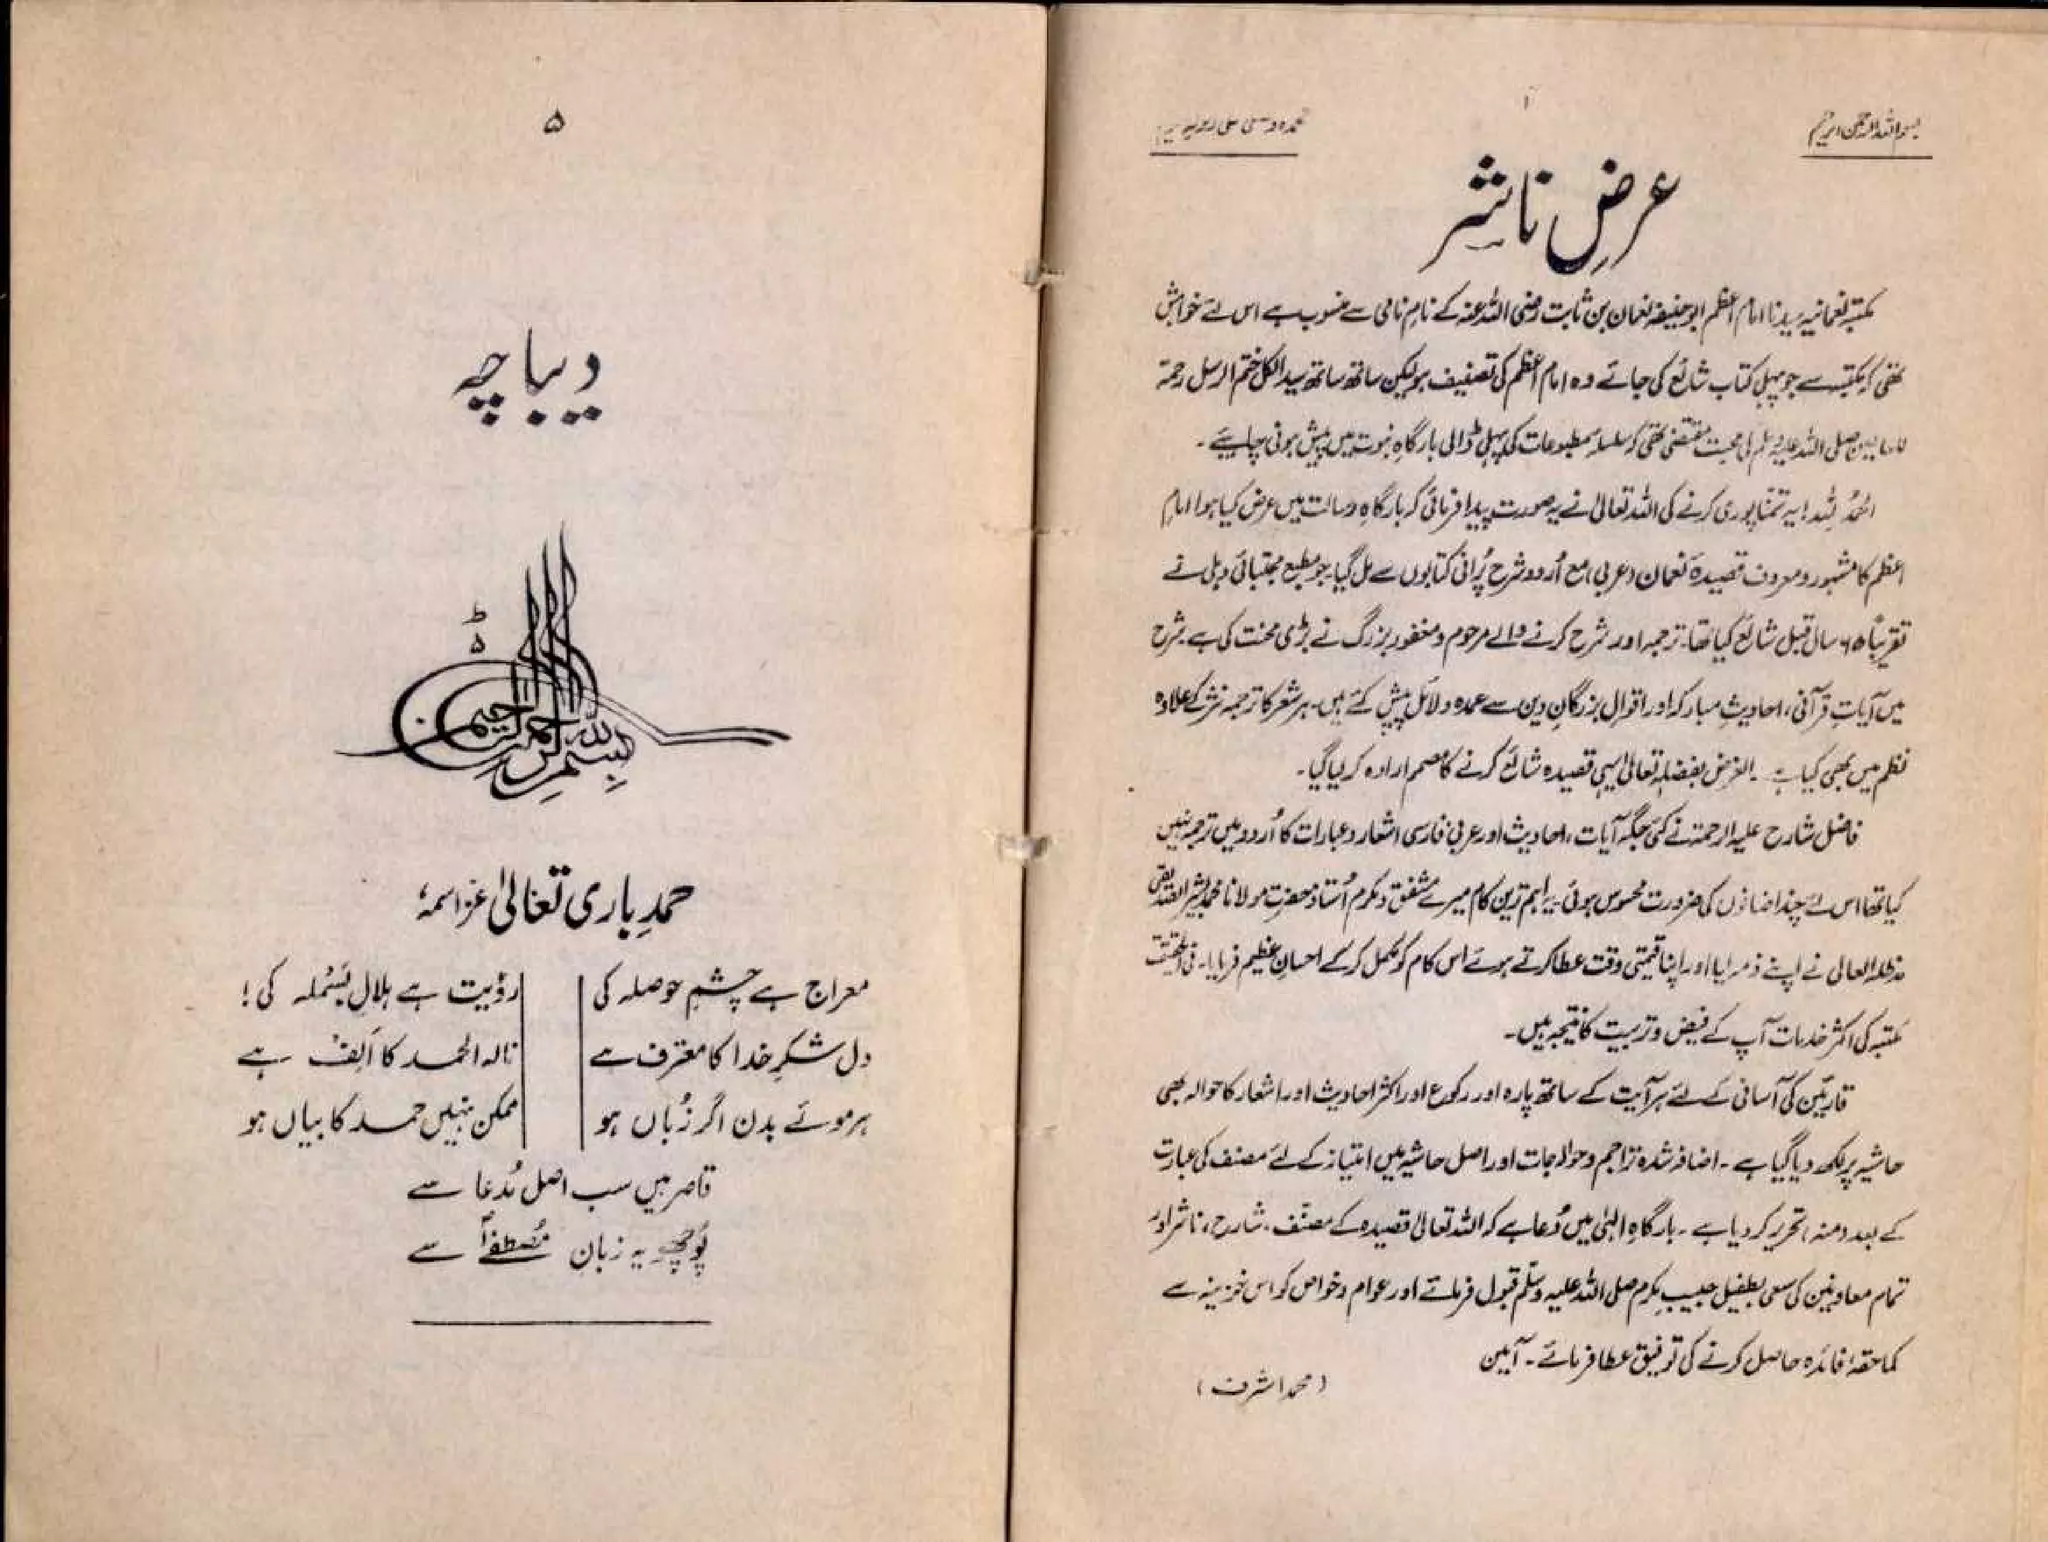 بسم اللہ الرحمن الرحیم
عرضِ ناشر
مکتبہ نعمانیہ سیدنا امام اعظم ابوحنیفہ نعمان بن ثابت رضی اللہ عنہ کے نامِ نامی سے منسوب ہے اس لئے خواہش
تھی کہ مکتبہ سے جو پہلی کتاب شائع کی جائے وہ امام اعظم کی تصنیف ہو لیکن ساتھ ساتھ سید الکل ختم الرسل رحمۃ
للعالمین صلی اللہ علیہ وسلم کی محبت مقتضی تھی کہ سلسلہ مطبوعات کی پہلی ڈالی بارگاہِ نبوت میں پیش ہونی چاہیے۔
الحمدُ للہ! یہ تمنا پوری کرنے کی اللہ تعالیٰ نے یہ صورت پیدا فرمائی کہ بارگاہِ رسالت میں عرض کیا ہوا امامِ
اعظم کا مشہور و معروف قصیدہ نعمان (عربی) مع اُردو شرح پُرانی کتابوں سے مل گیا۔ جو مطبع مجتبائی دہلی نے
تقریباً ۶۵ سال قبل شائع کیا تھا۔ ترجمہ اور شرح کرنے والے مرحوم و مغفور بزرگ نے بڑی محنت کی ہے۔ شرح
میں آیاتِ قرآنی، احادیثِ مبارکہ اور اقوالِ بزرگانِ دین سے عمدہ دلائل پیش کئے ہیں۔ ہر شعر کا ترجمہ نثر کے علاوہ
نظم میں بھی کیا ہے۔ الغرض بفضلہٖ تعالیٰ اسی قصیدہ شائع کرنے کا مصمم ارادہ کر لیا گیا۔
فاضل شارح علیہ الرحمتہ نے کئی جگہ آیات، احادیث اور عربی فارسی اشعار و عبارات کا اُردو میں ترجمہ نہیں
کیا تھا اس لئے چند اضافوں کی ضرورت محسوس ہوئی۔ یہ اہم ترین کام میرے مشفق و مکرم اُستاذ حضرت مولانا محمد
مدظلہ العالی نے اپنے ذمہ لیا اور اپنا قیمتی وقت عطا کرتے ہوئے اس کام کو مکمل کر کے احسانِ عظیم فرمایا۔ فی الحقیقت
مکتبہ کی اکثر خدمات آپ کے فیض و تربیت کا نتیجہ ہیں۔
قارئین کی آسانی کے لئے ہر آیت کے ساتھ پارہ اور رکوع اور اکثر احادیث اور اشعار کا حوالہ بھی
حاشیہ پر لکھ دیا گیا ہے۔ اضافہ شدہ تراجم و حوالہ جات اور اصل حاشیہ میں امتیاز کے لئے مصنف کی عبارت
کے بعد (منہ) تحریر کر دیا ہے۔ بارگاہِ الہٰی میں دُعا ہے کہ اللہ تعالیٰ قصیدہ کے مصنّف، شارح، ناشر اور
تمام معاونین کی سعی بطفیل حبیبِ مکرم صلی اللہ علیہ وسلّم قبول فرمائے اور عوام و خواص کو اس خزینہ سے
کماحقہٗ فائدہ حاصل کرنے کی توفیق عطا فرمائے۔ آمین
(محمد اشرف)
۵
دیباچہ
بسم الله الرحمن الرحیم
حمدِ باری تعالیٰ عزاسمہٗ
معراج ہے چشمِ حوصلہ کی رؤیت ہے ہلالِ بَسْملہ کی!
دل شکرِ خدا کا معترف ہے نالہ الحمد کا اَلِفْ ہے
ہر موئے بدن اگر زُباں ہو ممکن نہیں حمد کا بیاں ہو
قاصر ہیں سب اصل مُدعا سے
پُوچھے یہ زبانِ مُصطفٰےؐ سے